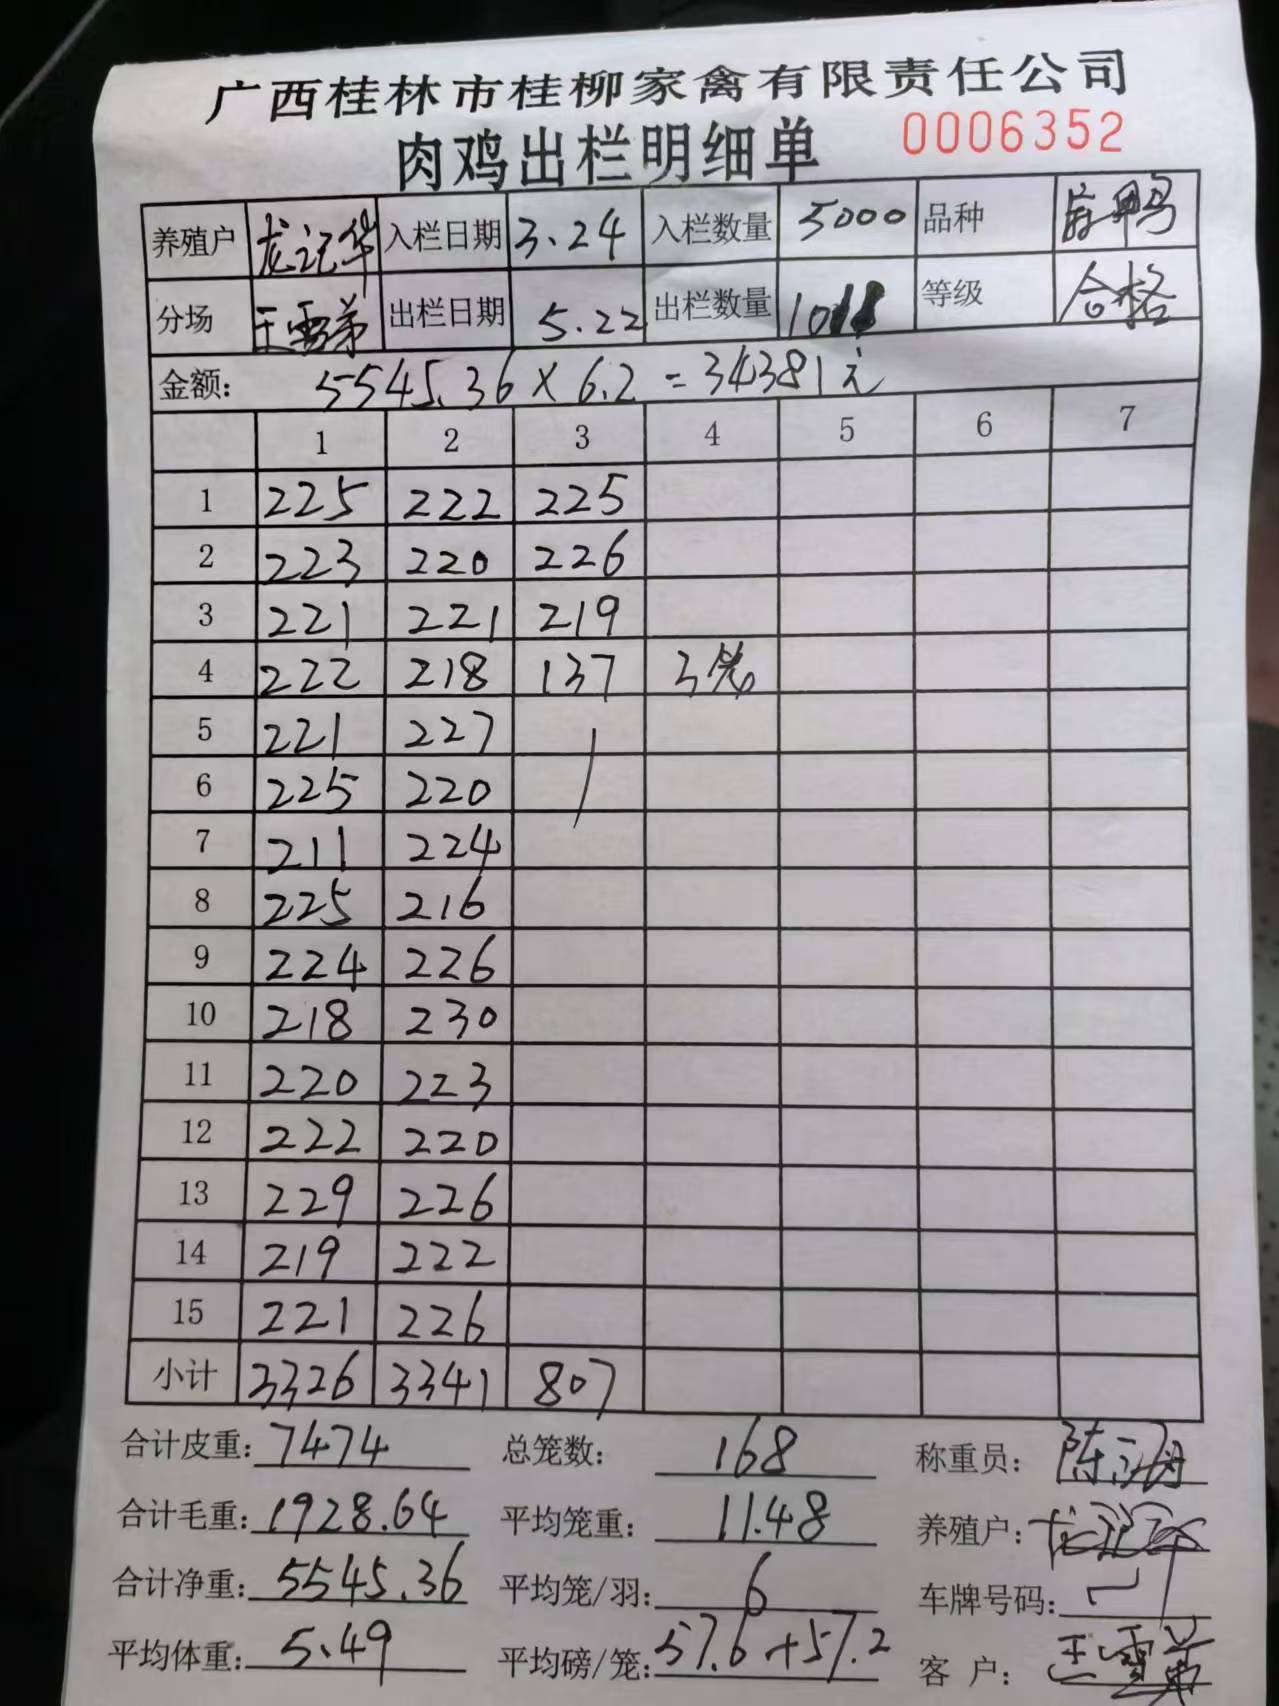 广西桂林市桂柳家禽有限责任公司
肉鸡出栏明细单 0006352
养殖户 龙记华 入栏日期 3.24 入栏数量 5000 品种
分场 王雪弟 出栏日期 5.22 出栏数量 等级 合格
金额: 5545.36×6.2=34381元
1 2 3 4 5 6 7
1 225 222 225
2 223 220 226
3 221 221 219
4 222 218 137 3笼
5 221 227
6 225 220
7 211 224
8 225 216
9 224 226
10 218 230
11 220 223
12 222 220
13 229 226
14 219 222
15 221 226
小计 3326 3341 807
合计皮重: 7474 总笼数: 168 称重员: 陈
合计毛重: 1928.64 平均笼重: 11.48 养殖户: 龙记华
合计净重: 5545.36 平均笼/羽: 6 车牌号码:
平均体重: 5.49 平均磅/笼: 57.6+57.2 客户: 王雪弟